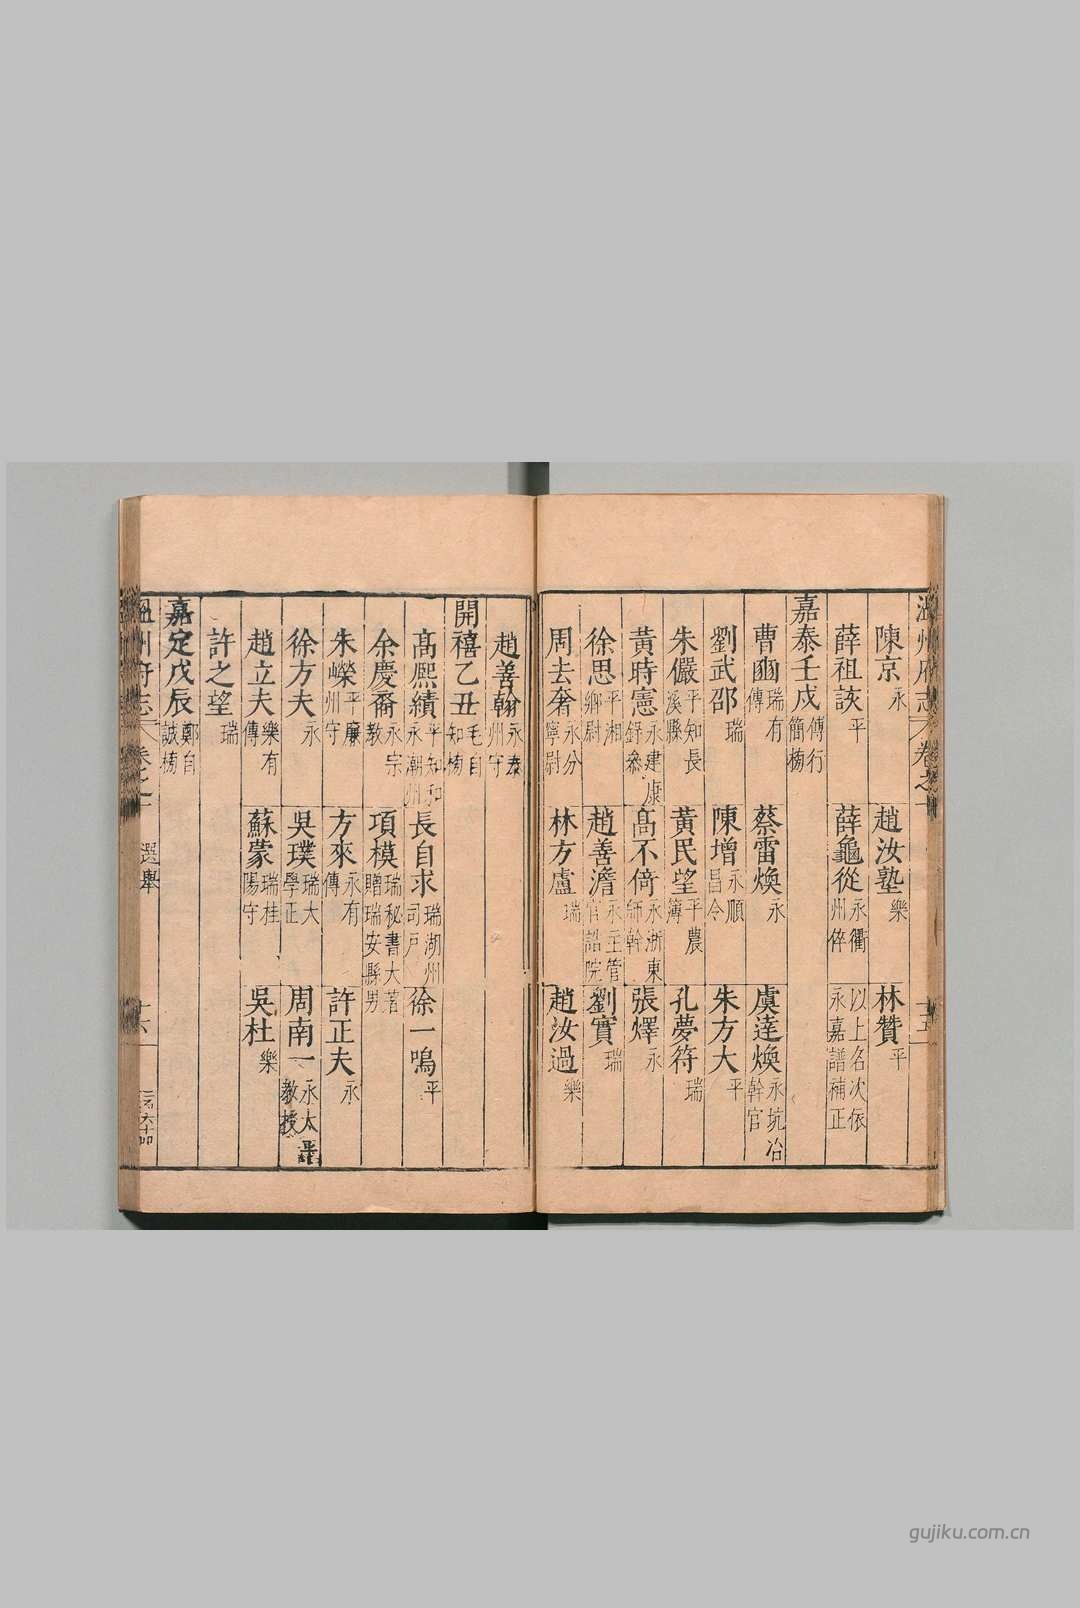 陳京 永 趙汝塾 樂 林贊 平
薛祖該 平 薛龜從 永衢州倅 以上名次依永嘉譜補正
嘉泰壬戌 傅行簡榜
曹豳 瑞有傳 蔡雷煥 永 虞逹煥 永坑冶幹官
劉武邵 瑞 陳增 永順昌令 朱方大 平
朱儼 平知長溪縣 黃民望 平農簿 孔夢符 瑞
黃時憲 永建康錄叅 高不倚 永浙東師幹 張燡 永
徐思 平湘鄉尉 趙善澹 永主管官誥院 劉實 瑞
周去奢 永分寧尉 林方盧 瑞 趙汝過 樂
趙善翰 永泰州守
開禧乙丑 毛自知榜
高熙績 平知和永潮州 長自求 瑞湖州司戶 徐一鳴 平
余慶裔 永宗教 項模 瑞秘書大著贈瑞安縣男
朱嶸 平廉州守 方來 永有傳 許正夫 永
徐方夫 永 吳璞 瑞大學正 周南一 永太平教授
趙立夫 樂有傳 蘇蒙 瑞桂陽守 吳杜 樂
許之望 瑞
嘉定戊辰 鄭自誠榜
溫州府志 卷之十 選舉
gujiku.com.cn